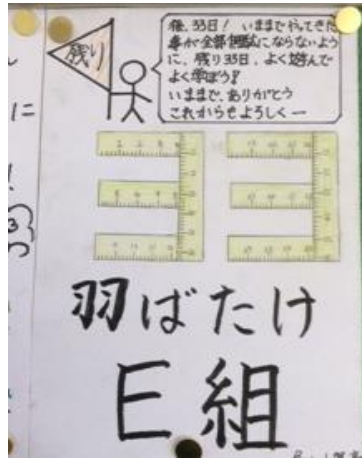 残り
後、33日！ いままでやってきた
事が全部無駄にならないよう
に、残り33日、よく遊んで
よく学ぼう！
いままで、ありがとう
これからもよろしくー
33
羽ばたけ
E組